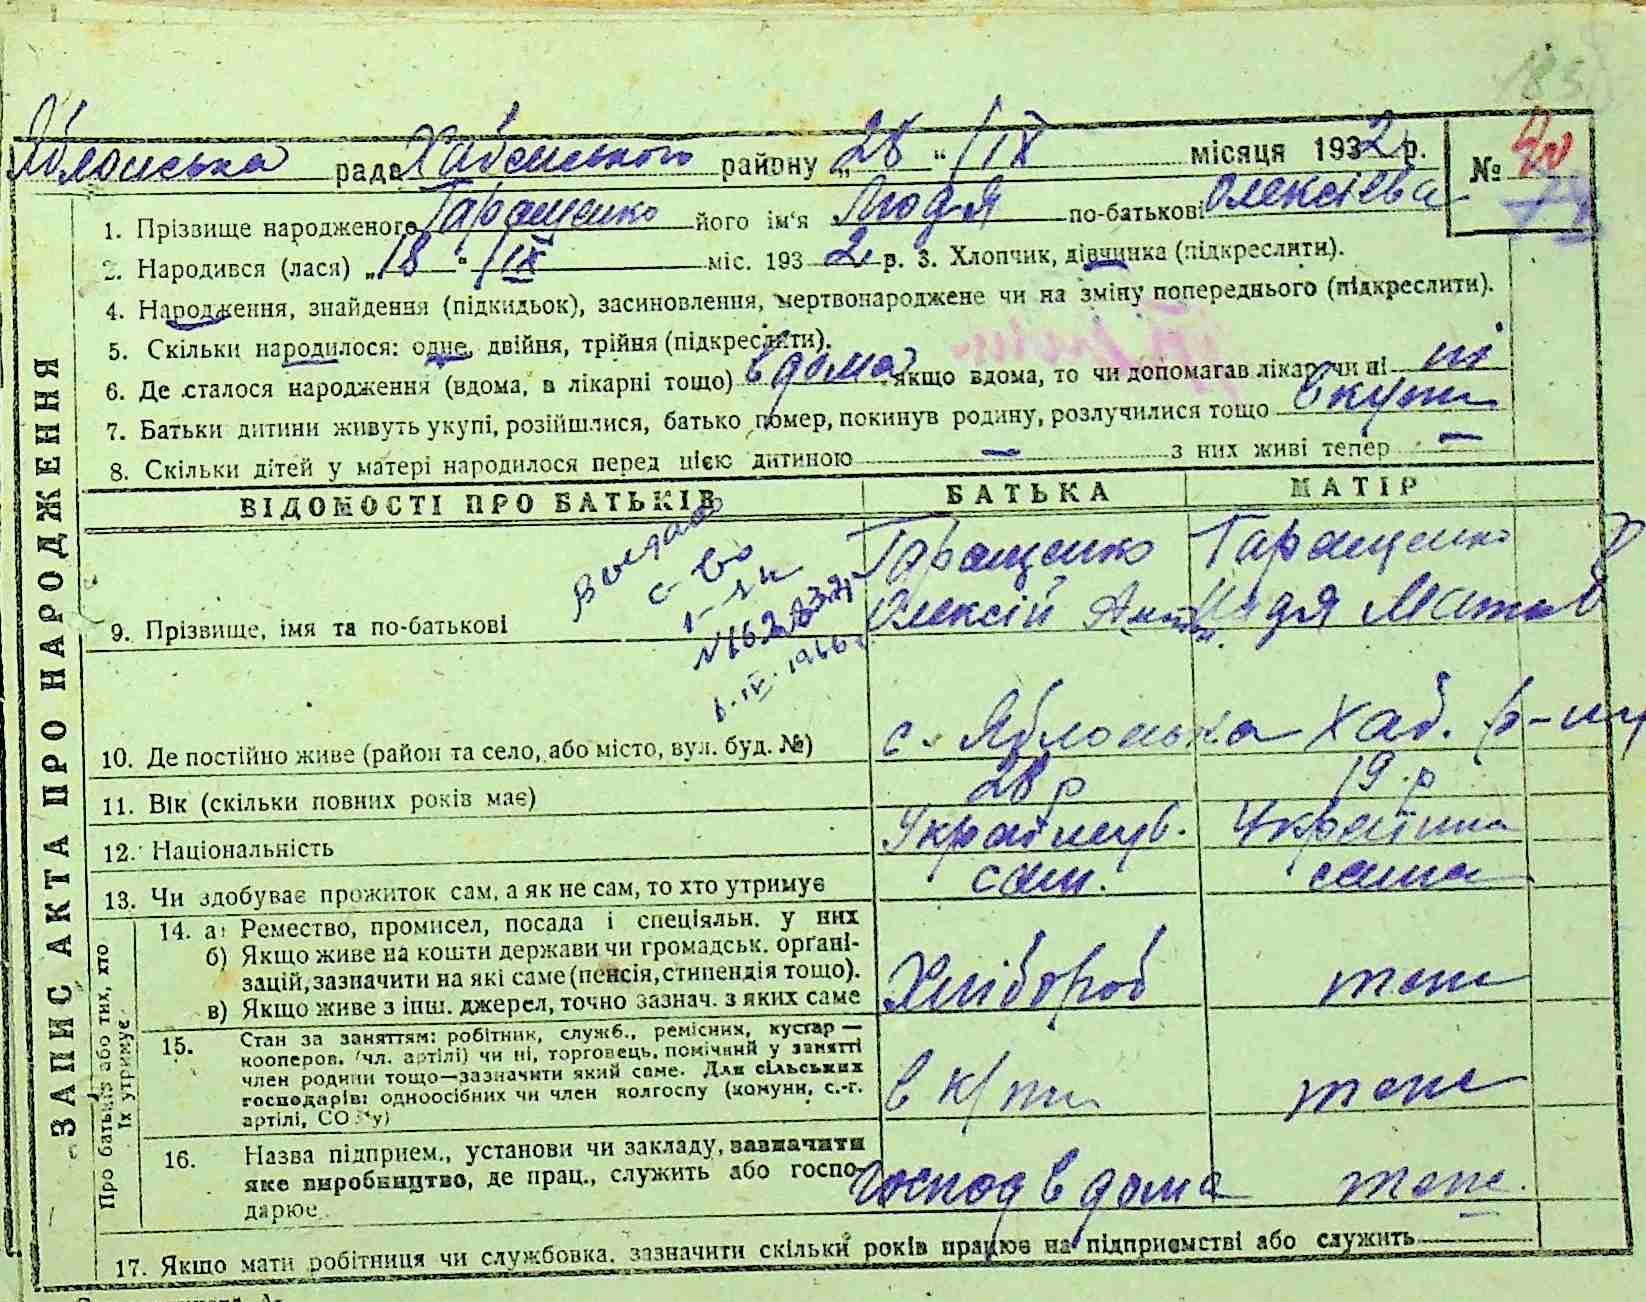 185
Яблонська рада Хабенського району „28“ /IX місяця 1932 р. №
1. Прізвище народженого Таращенко його ім'я Людя по-батькові Олексієва
2. Народився (лася) „18“ /IX міс. 1932 р. 3. Хлопчик, дівчинка (підкреслити).
4. Народження, знайдення (підкидьок), засиновлення, мертвонароджене чи на зміну попереднього (підкреслити).
5. Скільки народилося: одне, двійня, трійня (підкреслити).
6. Де сталося народження (вдома, в лікарні тощо) вдома якщо вдома, то чи допомагав лікар чи ні ні
7. Батьки дитини живуть укупі, розійшлися, батько помер, покинув родину, розлучилися тощо вкупі
8. Скільки дітей у матері народилося перед цією дитиною — з них живі тепер —
ВІДОМОСТІ ПРО БАТЬКІВ БАТЬКА МАТІР
9. Прізвище, імя та по-батькові Таращенко Олексій Таращенко Надя
10. Де постійно живе (район та село, або місто, вул. буд. №) с. Яблонська Хаб. р-ну
11. Вік (скільки повних років має) 28 р 19 р
12. Національність Україн. Українка
13. Чи здобуває прожиток сам, а як не сам, то хто утримує сам. сама
14. а) Ремество, промисел, посада і спеціяльн. у них
б) Якщо живе на кошти держави чи громадськ. органі-
зацій, зазначити на які саме (пенсія, стипендія тощо).
в) Якщо живе з інш. джерел, точно зазнач. з яких саме
Хлібороб теж
15. Стан за заняттям: робітник, служб., ремісник, кустар —
кооперов. (чл. артілі) чи ні, торговець, помічний у занятті
член родини тощо—зазначити який саме. Для сільських
господарів: одноосібних чи член колгоспу (комуни, с.-г.
артілі, СОЗ'у)
теж
16. Назва підприєм., установи чи закладу, зазначити
яке виробництво, де прац., служить або госпо-
дарює
господ вдома теж.
17. Якщо мати робітниця чи службовка, зазначити скільки років працює на підприємстві або служить
ЗАПИС АКТА ПРО НАРОДЖЕННЯ
Про батьків або тих, хто
їх утримує